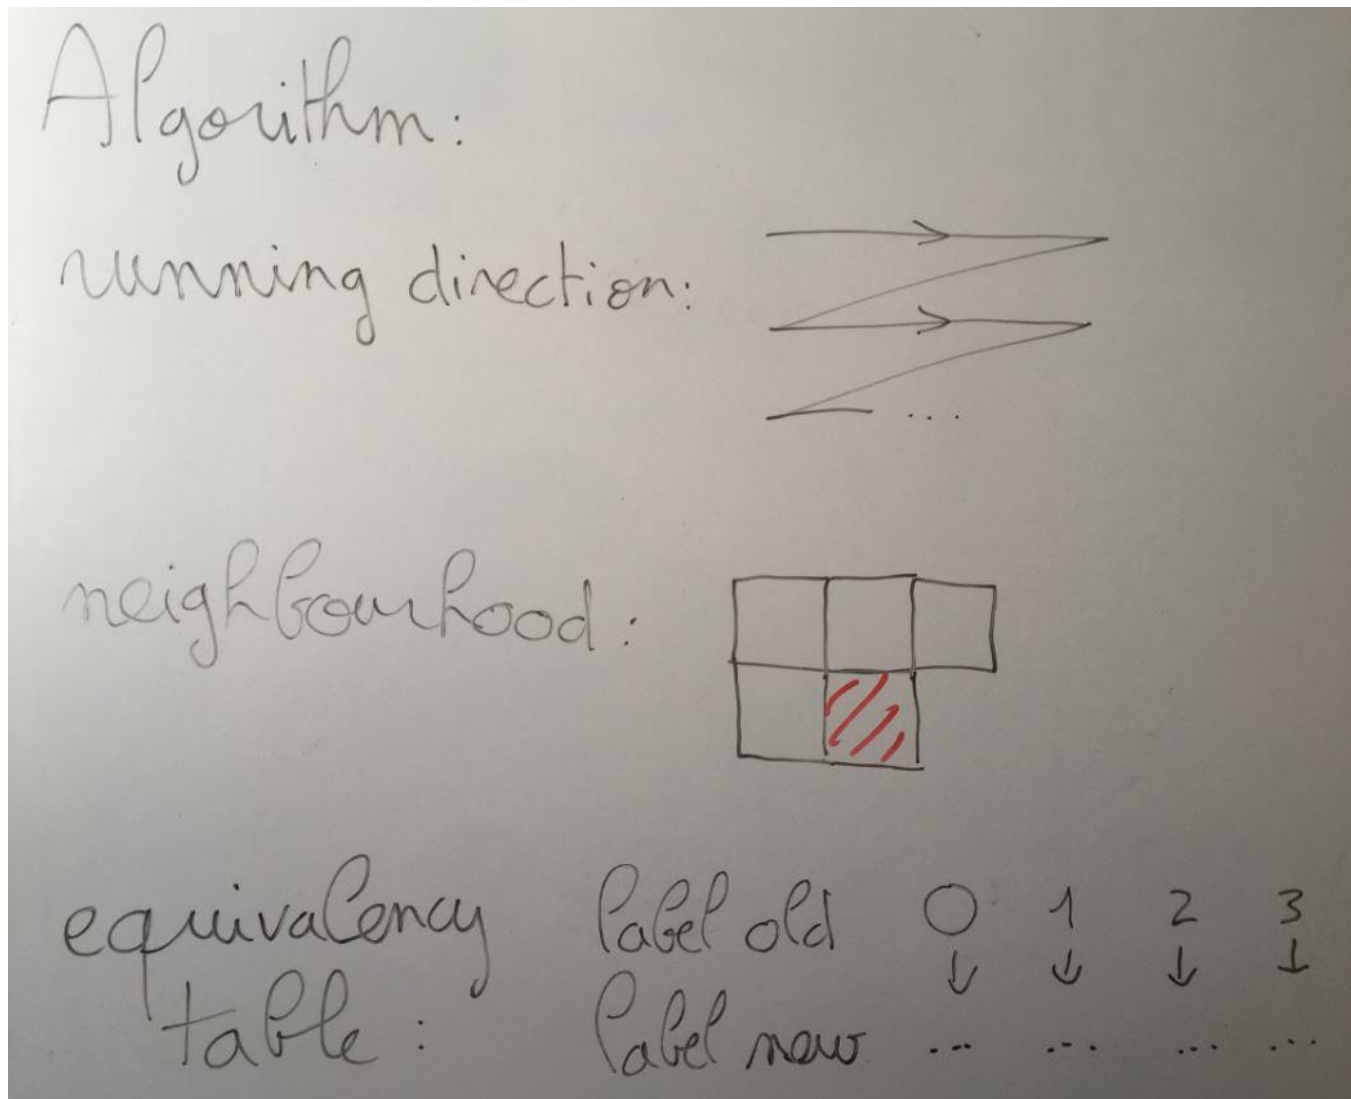 Algorithm:
running direction:
...
neighbourhood:
equivalency label old 0 1 2 3
table: label new ... ... ... ...